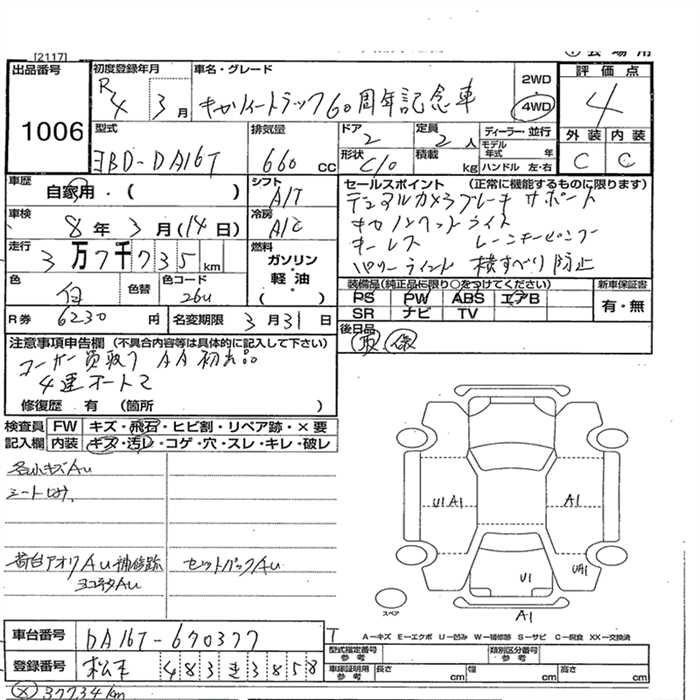 [2117]
出品番号
1006
初度登録年月
R4 3月
車名・グレード
キャリィートラック60周年記念車
2WD
4WD
評価点
4
外装 内装
C C
型式
3BD-DA16T
排気量
660 cc
ドア
2
定員
2人
ディーラー・並行
モデル年式 年
形状
C/O
積載 kg
ハンドル 左・右
車歴
自家用・( )
シフト
A/T
車検
8年3月(14日)
冷房
A/C
走行
3万7千735km
燃料
ガソリン・軽油
( )
色
白
色替
色コード
26U
R券
6230円
名変期限 3月31日
セールスポイント (正常に機能するものに限ります)
デュアルカメラブレーキサポート
キーレス
横すべり防止
装備品(純正品に限り○をつけてください)
新車保証書
PS PW ABS エアB
SR ナビ TV
有・無
後日品
取 保
注意事項申告欄 (不具合内容等は具体的に記入して下さい)
ユーザー買取り AA初出品
4速オートマ
修復歴 有 (箇所 )
検査員記入欄
FW キズ・飛石・ヒビ割・リペア跡・×要
内装 キズ・汚レ・コゲ・穴・スレ・キレ・破レ
各小キズAu
荷台アオリAu補修跡
セットバックAu
U1 A1
A1
U1
A1
スペア
車台番号
DA16T-670377
登録番号
松本 483 き 3858
A-キズ E-エクボ U-凹み W-補修跡 S-サビ C-腐食 XX-交換済
型式指定番号 参考
類別区分番号 参考
車庫証明用 参考
長さ cm
幅 cm
高さ cm
37734km